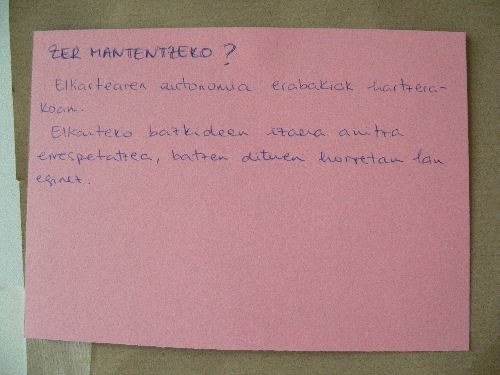 ZER MANTENTZEKO?
Elkartearen autonomia erabakiak hartzera-
koan.
Elkarteko bazkideen izaera anitza
errespetatzea, batzen dituen horretan lan
eginez.